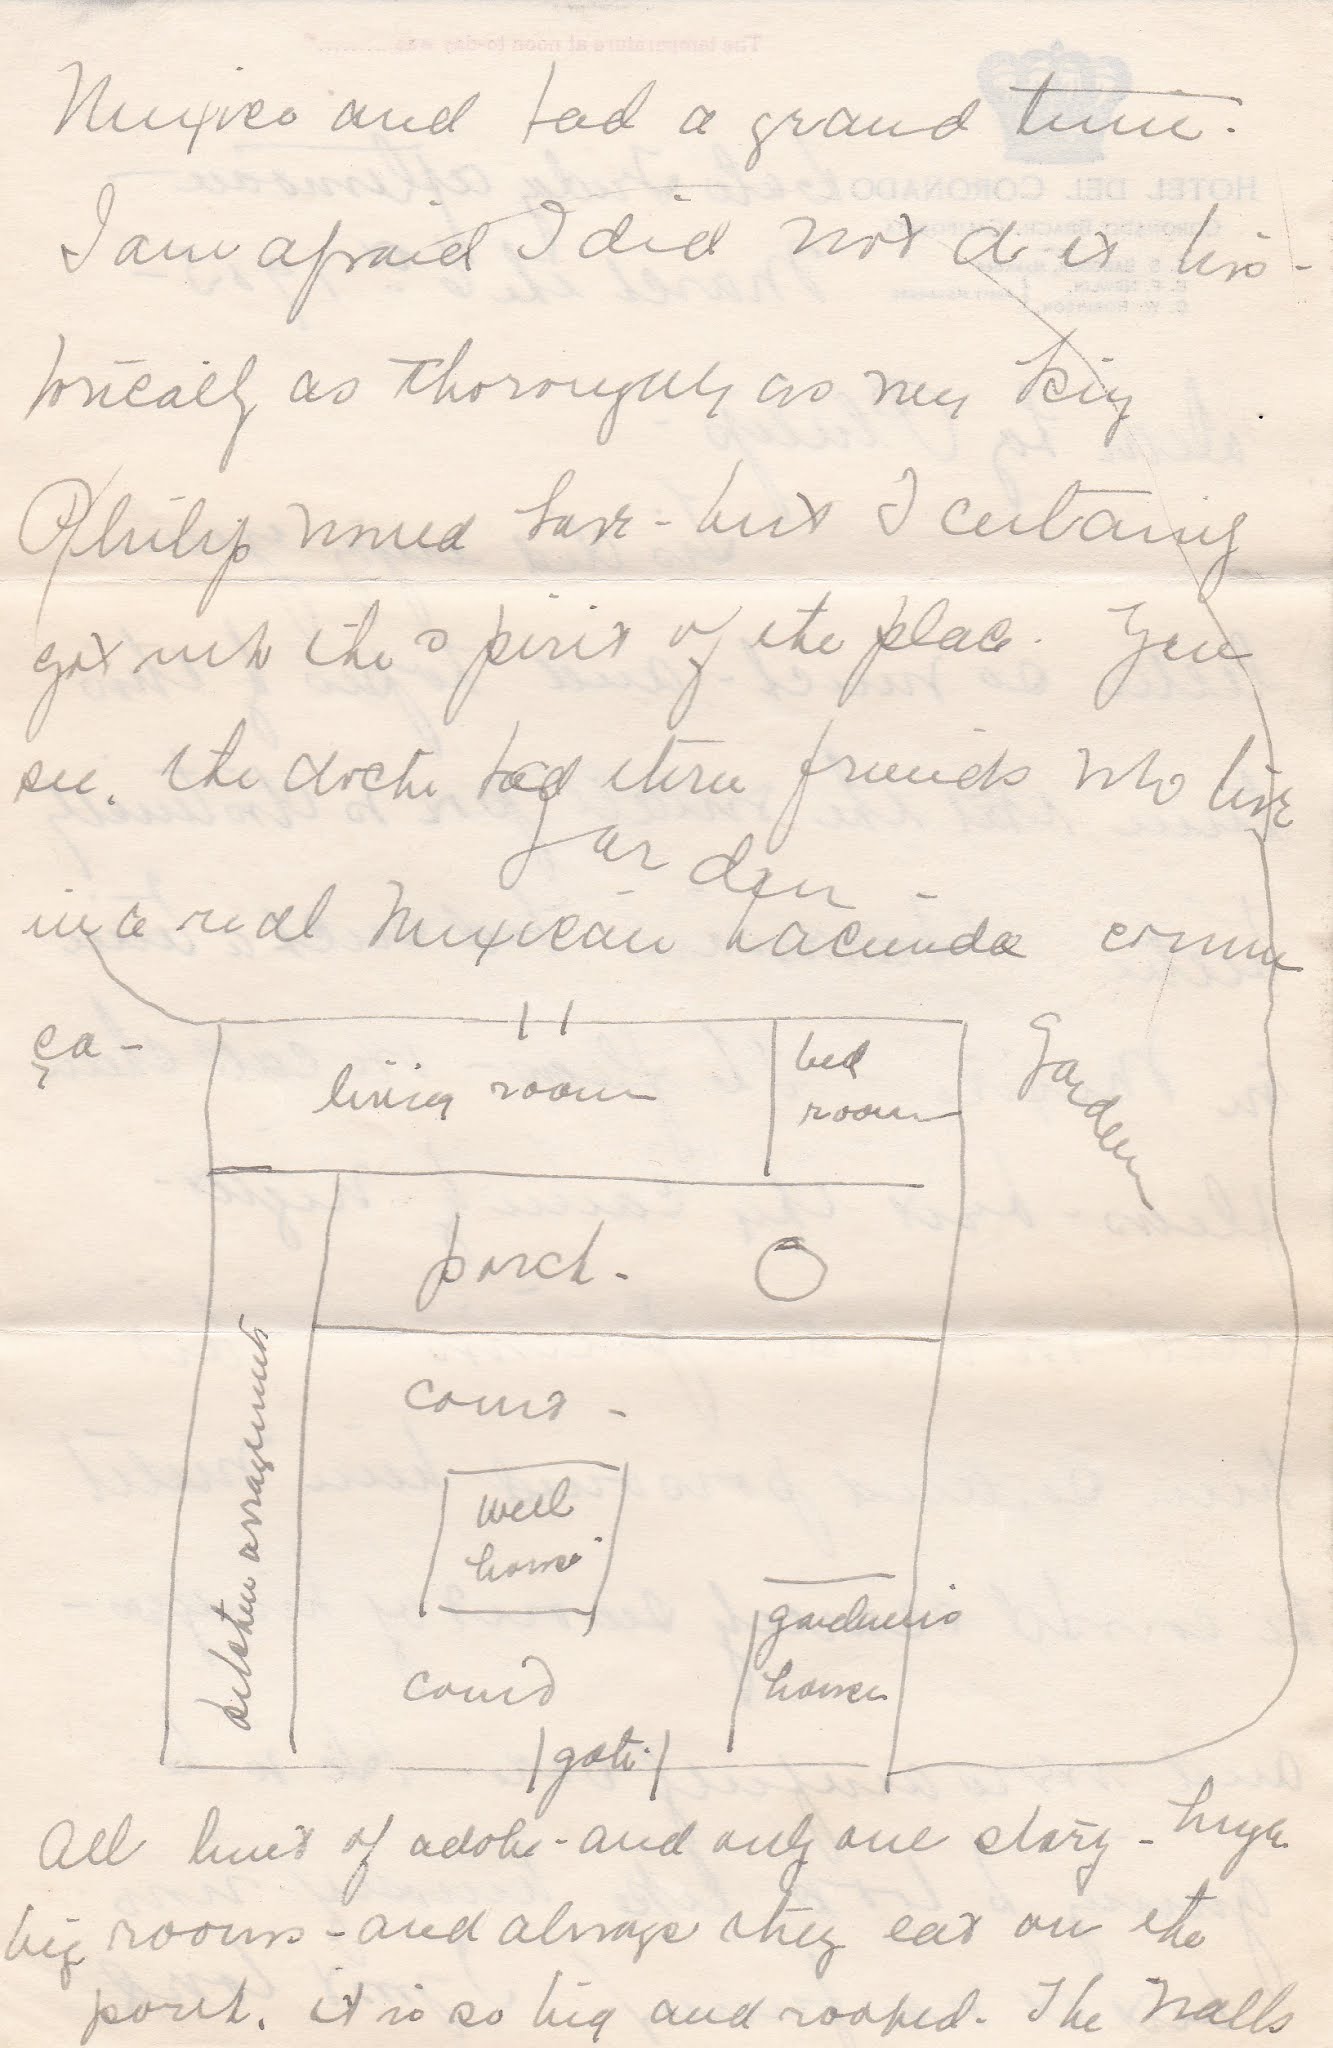 Mexico and had a grand time.
I am afraid I did not do it his-
torically as thoroughly as my big
Philip would have - but I certainly
got with the spirit of the place. You
see, the doctor had these friends who live
garden -
in a real Mexican hacienda comme
ça -
living room
bed
room
Garden
porch -
court -
kitchen arragements
well
house
gardener's
house
court
gate
All built of adobe - and only one story - huge
big rooms - and always they eat on the
porch, it is so big and roofed. The walls
HOTEL DEL CORONADO
CORONADO BEACH, CALIFORNIA
The temperature at noon to-day was ..........°